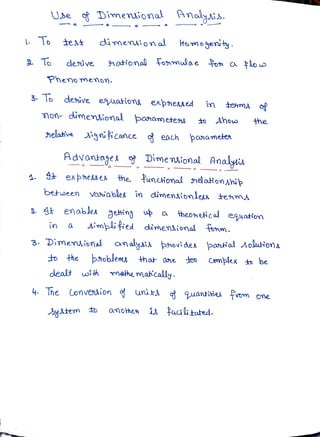 Use of Dimensional Analysis.
1. To test dimensional Homogenity.
2. To derive rational Formulae for a flow
Phenomenon.
3. To derive equations expressed in terms of
non-dimensional parameters to show the
relative significance of each parameter
Advantages of Dimensional Analysis
1. It expresses the functional relationship
between variables in dimensionless terms
2. It enables getting up a theoretical equation
in a simplified dimensional form.
3. Dimensional analysis provides partial solutions
to the problems that are too complex to be
dealt with mathematically.
4. The Conversion of units of quantities from one
system to another is facilitated.